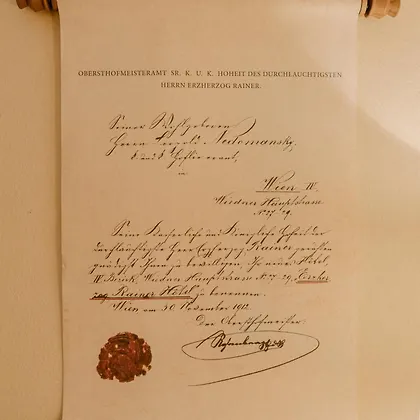 OBERSTHOFMEISTERAMT SR. K. U. K. HOHEIT DES DURCHLAUCHTIGSTEN
HERRN ERZHERZOG RAINER.
Seiner Wohlgeboren
Herrn Leopold Nedomansky,
k. und k. Hoflieferant,
in
Wien IV.
Wiedner Hauptstrasse
No 27/29.
Seine Kaiserliche und Königliche Hoheit der
durchlauchtigste Herr Erzherzog Rainer geruhten
gnädigst Ihnen zu bewilligen, Ihr neues Hôtel,
IV. Bezirk, Wiedner Hauptstrasse No 27-29, Erzher-
zog Rainer Hôtel zu benennen.
Wien am 30 November 1912
Der Obersthofmeister: